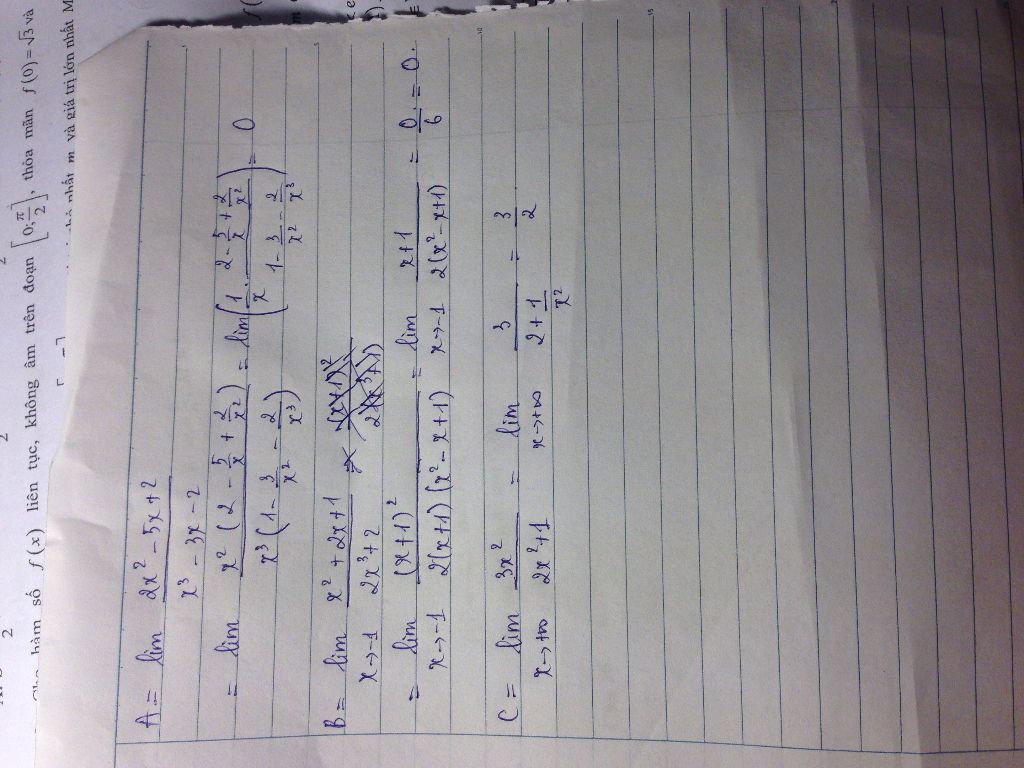 2
2
2
hàm số f(x) liên tục, không âm trên đoạn [0; π/2], thỏa mãn f(0) = √3 và
nhất m và giá trị lớn nhất M
A = lim (2x² - 5x + 2)/(x³ - 3x - 2)
= lim x²(2 - 5/x + 2/x²)/x³(1 - 3/x² - 2/x³) = lim(1/x · (2 - 5/x + 2/x²)/(1 - 3/x² - 2/x³)) = 0
B = lim x→-1 (x² + 2x + 1)/(2x³ + 2)
= lim x→-1 (x+1)²/2(x+1)(x² - x + 1) = lim x→-1 (x+1)/2(x² - x + 1) = 0/6 = 0.
C = lim x→+∞ 3x²/(2x² + 1) = lim x→+∞ 3/(2 + 1/x²) = 3/2